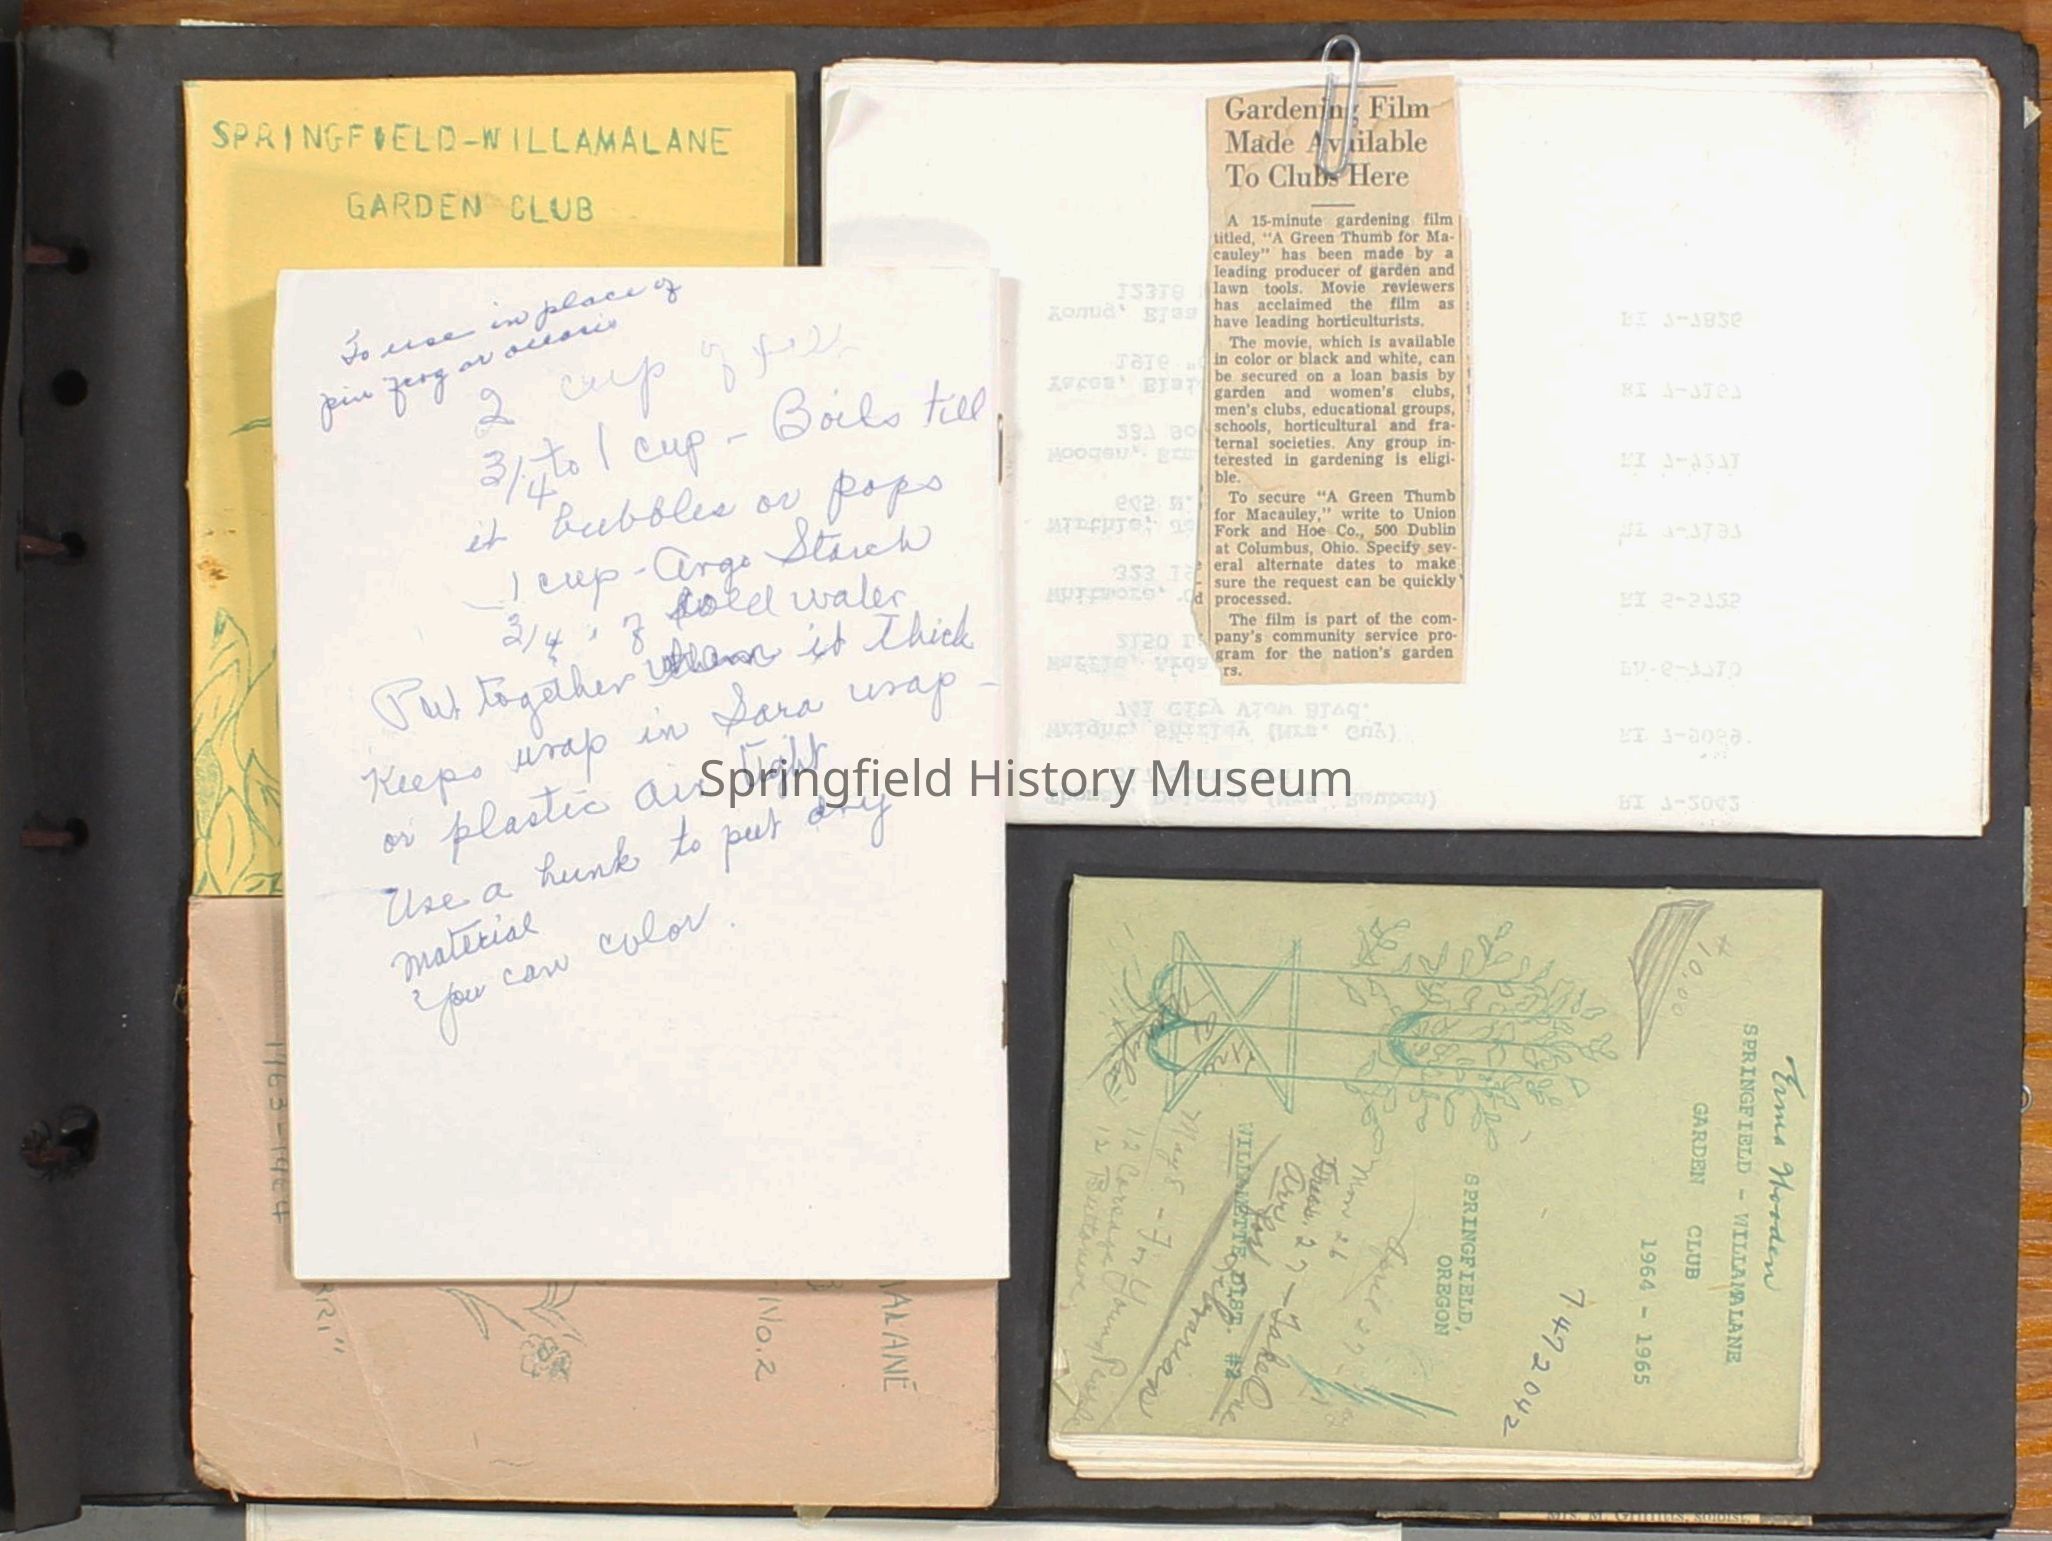 SPRINGFIELD-WILLAMALANE
GARDEN CLUB
To use in place of
pin frog or oasis
2 cup of
3/4 to 1 cup - Boils till
it bubbles or pops
1 cup - Argo Starch
3/4 " of cold water
Put together it thick
Keeps wrap in Sara wrap -
or plastic air tight
Use a hunk to put dry
material
You can color.
1963-1964
ALANE
No. 2
RRI"
Gardening Film
Made Available
To Clubs Here
A 15-minute gardening film
titled, "A Green Thumb for Ma-
cauley" has been made by a
leading producer of garden and
lawn tools. Movie reviewers
has acclaimed the film as
have leading horticulturists.
The movie, which is available
in color or black and white, can
be secured on a loan basis by
garden and women's clubs,
men's clubs, educational groups,
schools, horticultural and fra-
ternal societies. Any group in-
terested in gardening is eligi-
ble.
To secure "A Green Thumb
for Macauley," write to Union
Fork and Hoe Co., 500 Dublin
at Columbus, Ohio. Specify sev-
eral alternate dates to make
sure the request can be quickly
processed.
The film is part of the com-
pany's community service pro-
gram for the nation's garden
rs.
Young, Elsa
12318
RI 7-7826
Yates, Elsie
1916
RI 7-7167
Wooden,
287
RI 7-9271
645 W.
RI 7-7197
Whitmore,
323
RI 6-5725
2150
741 City View Blvd.
Wright, Shirley (Mrs. Guy)
RI 7-9089
(Mrs. Reuben)
RI 7-2042
Springfield History Museum
Erma Wooden
SPRINGFIELD - WILLAMALANE
GARDEN CLUB
1964 - 1965
$10.00
7472042
SPRINGFIELD,
OREGON
WILLAMETTE DIST. #2
Nov 26
May 8 - For
12 Corsage
12
Mrs. M. Griffiths, soloist.